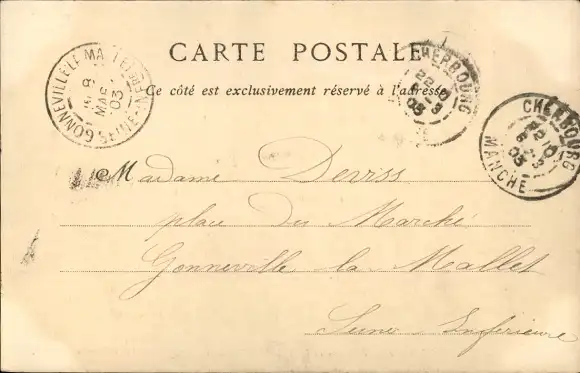 CARTE POSTALE
Ce côté est exclusivement réservé à l'adresse
GONNEVILLE-LA-MALLET
SEINE-INFRE
MARS
03
CHERBOURG
22
03
CHERBOURG
MANCHE
03
Madame Deviss
place du Marché
Gonneville la Mallet
Seine Inférieure